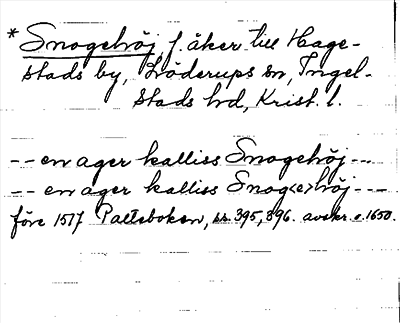 * Snogehöj, f. åker till Hage-
stads by, Löderups sn, Ingel-
stads hd, Krist. l.
-- en ager kalliss Snogehöj --
-- en ager kalliss Snog<e>höj --
före 1517 Palteboken, nr. 395, 396. avskr. c. 1650.